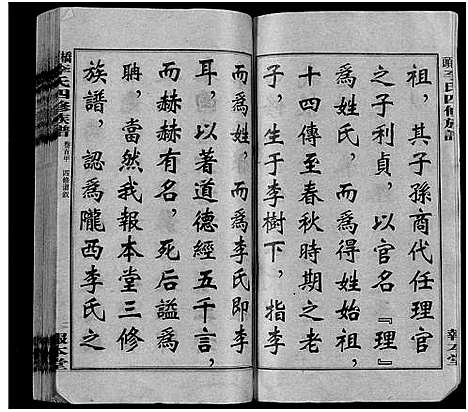 祖，其子孫商代任理官
之子利貞，以官名『理』
爲姓氏，而爲得姓始祖，
十四傳至春秋時期之老
子，生于李樹下，指李
而爲姓，而爲李氏即李
耳，以著道德經五千言，
而赫赫有名，死后謚爲
聃，當然我報本堂三修
族譜，認爲隴西李氏之
橋李氏四修族譜
卷首
報本堂
李氏四修族譜
報本堂